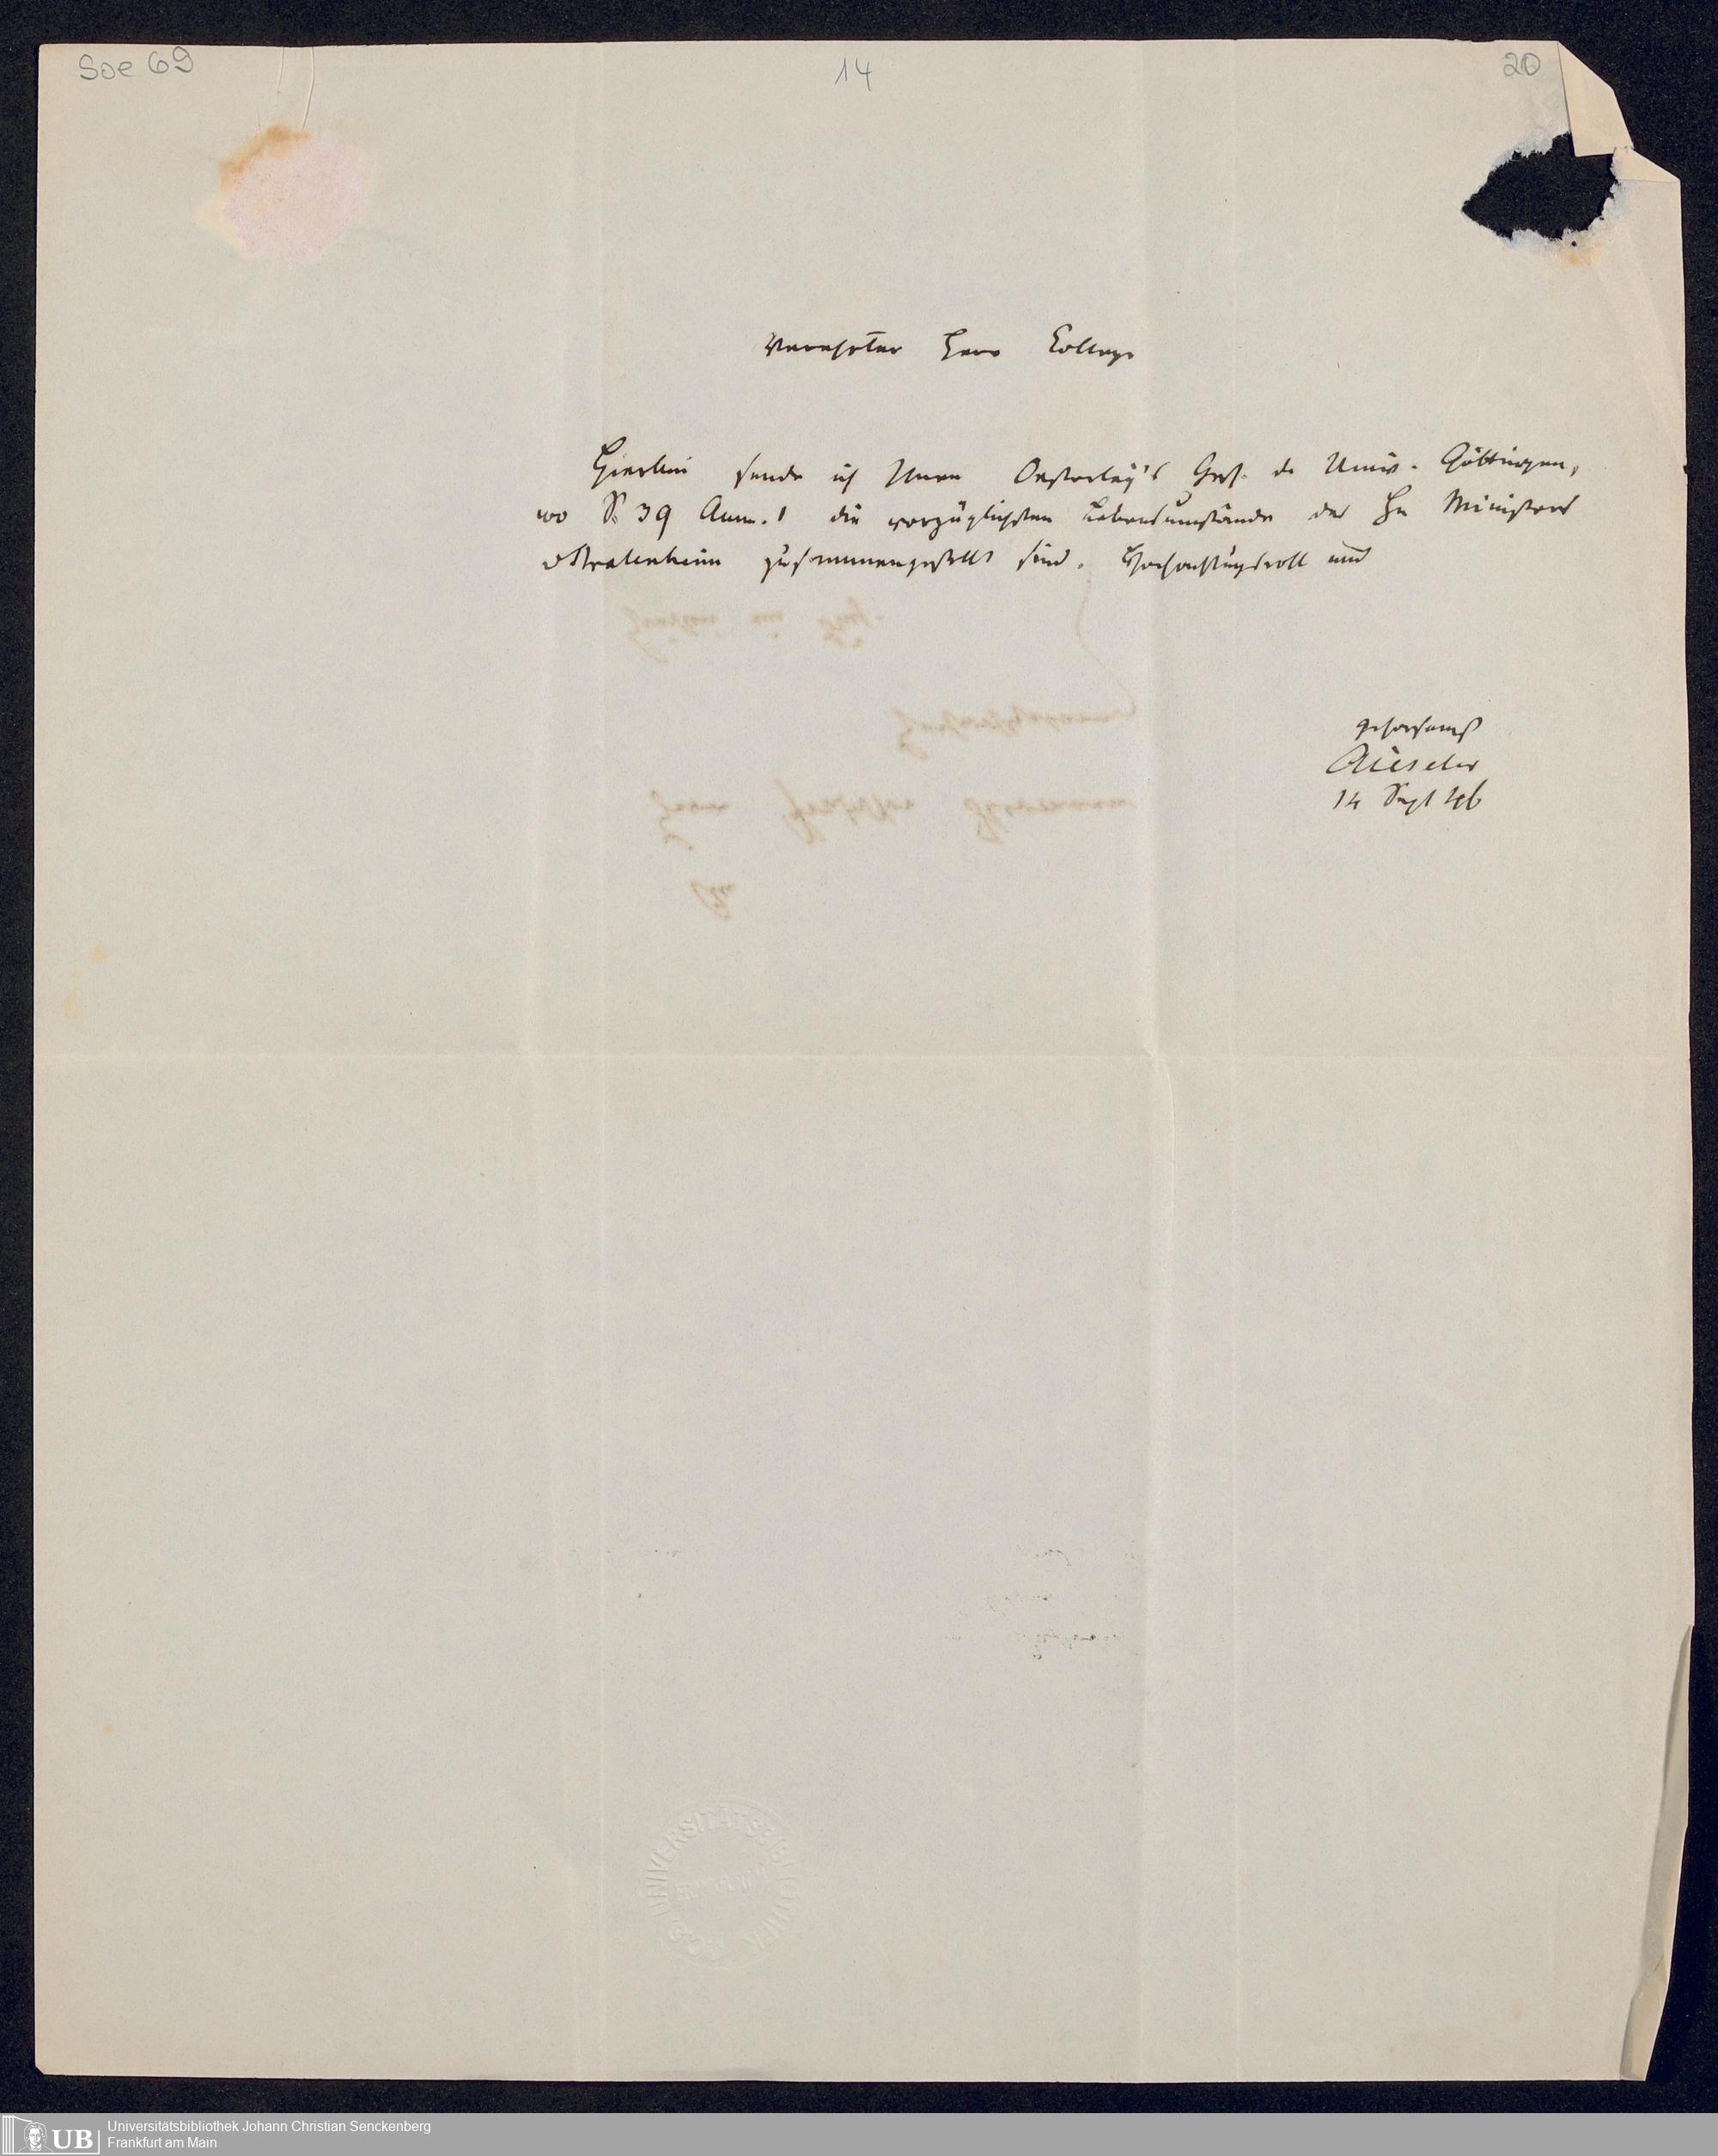 Soe 69
14
20
Verehrter Herr College
Hierbei sende ich Ihnen Oesterley's Gesch. d. Univ. Göttingen,
wo S. 39 Anm. 1 die vorzüglichsten Lebensumstände des Hn Ministers
v Stralenheim zusammengestellt sind. Hochachtungsvoll und
gehorsamst
Gieseler
14 Sept 46
UNIVERSITÄTSBIBLIOTHEK
UB
Universitätsbibliothek Johann Christian Senckenberg
Frankfurt am Main